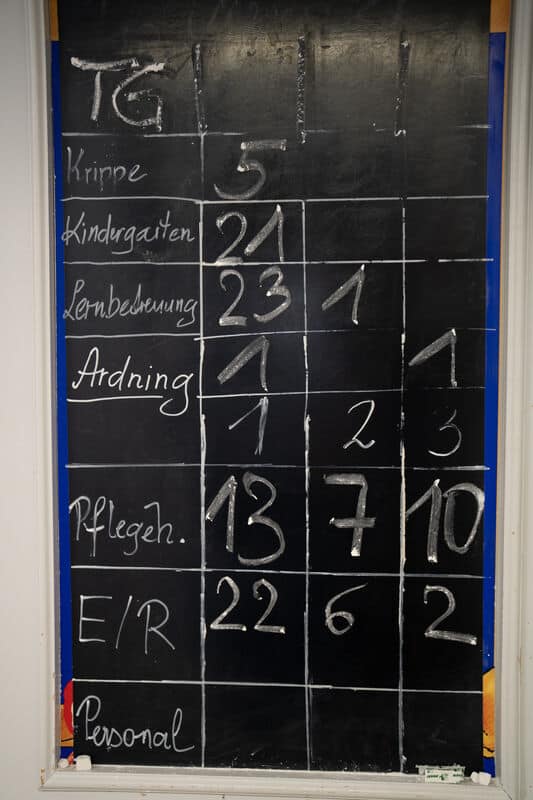 TG
Krippe 5
Kindergarten 21
Lernbetreuung 23 1
Ardning 1 1
1 2 3
Pflegeh. 13 7 10
E/R 22 6 2
Personal